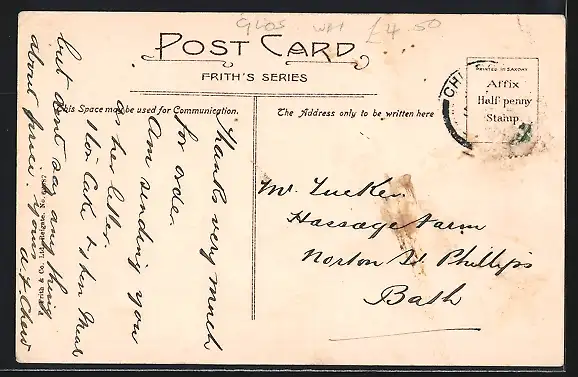 Glos £4.50
POST CARD
FRITH'S SERIES
This Space may be used for Communication.
The Address only to be written here
PRINTED IN SAXONY
Affix
Half-penny
Stamp
CHI
Thanks very much
for order.
Am sending you
as her letter.
1 ton Cake & 1 ton Meal
but dont say any thing
about price. Yours
Mr. Tucker
Hassage Farm
Norton St Phillips
Bath